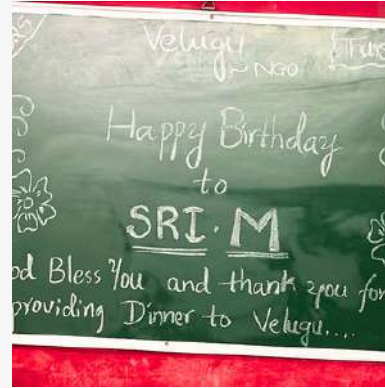 Velugu
~ NGO
Happy Birthday
to
SRI. M
od Bless You and thank you for
providing Dinner to Velugu....